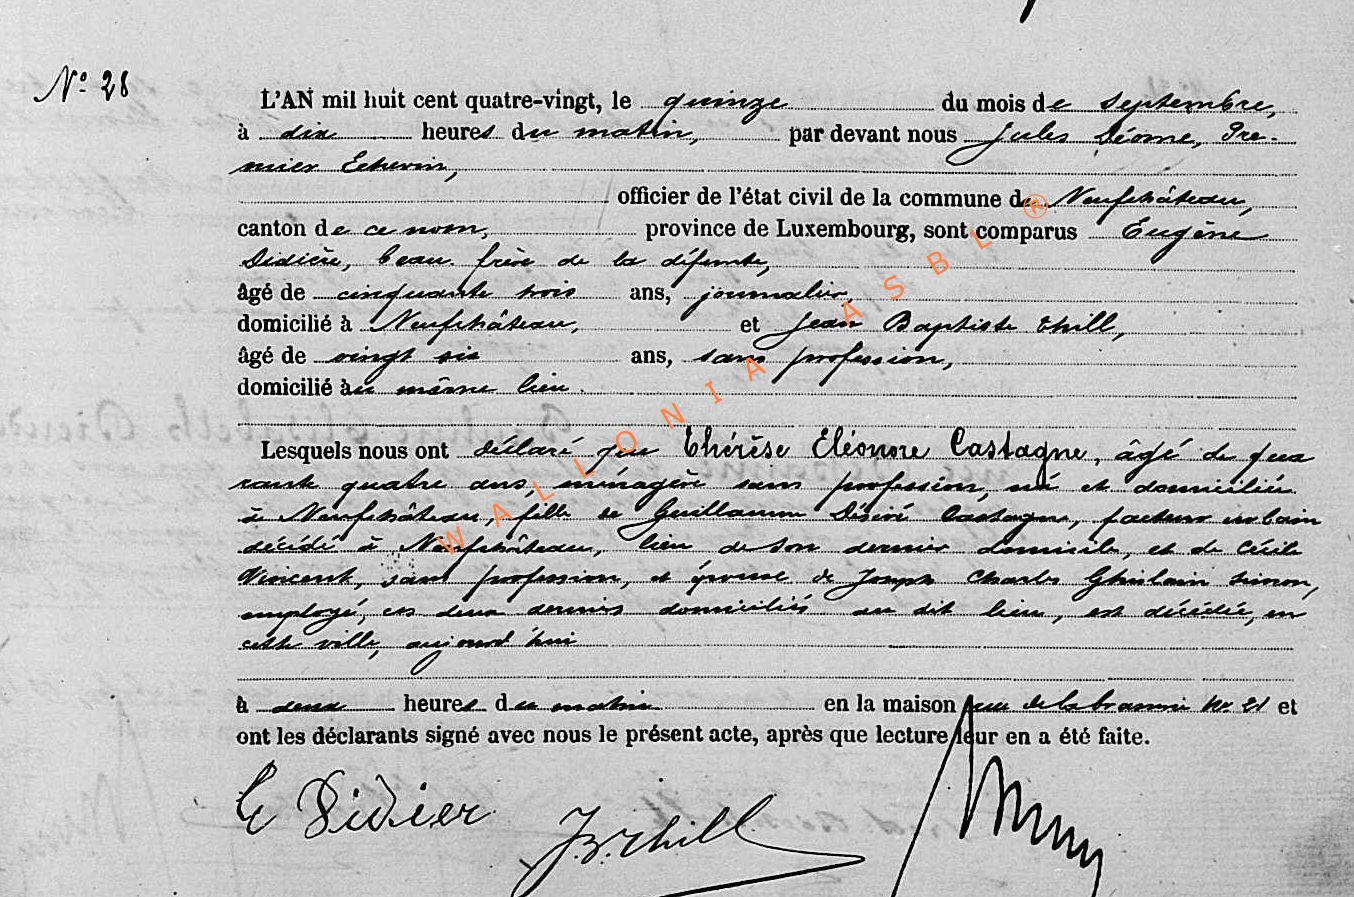 N° 28
L'AN mil huit cent quatre-vingt, le quinze du mois de Septembre,
à dix heures du matin, par devant nous Jules Déome, Pre-
mier Echevin,
officier de l'état civil de la commune de Neufchâteau,
canton de ce nom, province de Luxembourg, sont comparus Eugène
Didière, beau frère de la défunte,
âgé de cinquante trois ans, journalier,
domicilié à Neufchâteau, et Jean Baptiste Thill,
âgé de vingt six ans, sans profession,
domicilié au même lieu.
Lesquels nous ont déclaré que Thérèse Eléonore Castagne, âgé de qua
rante quatre ans, ménagère sans profession, né et domiciliée
à Neufchâteau, fille de Guillaume Désiré Castagne, facteur urbain
décédé à Neufchâteau, lieu de son dernier domicile, et de Cécile
Vincent, sans profession, et épouse de Joseph Charles Ghislain Simon,
employé, ces deux derniers domiciliés au dit lieu, est décédée, en
cette ville, aujourd'hui
à deux heures du matin en la maison rue de la brasserie N° 21 et
ont les déclarants signé avec nous le présent acte, après que lecture leur en a été faite.
E Didier JBThill
WALLONIA ASBL ®